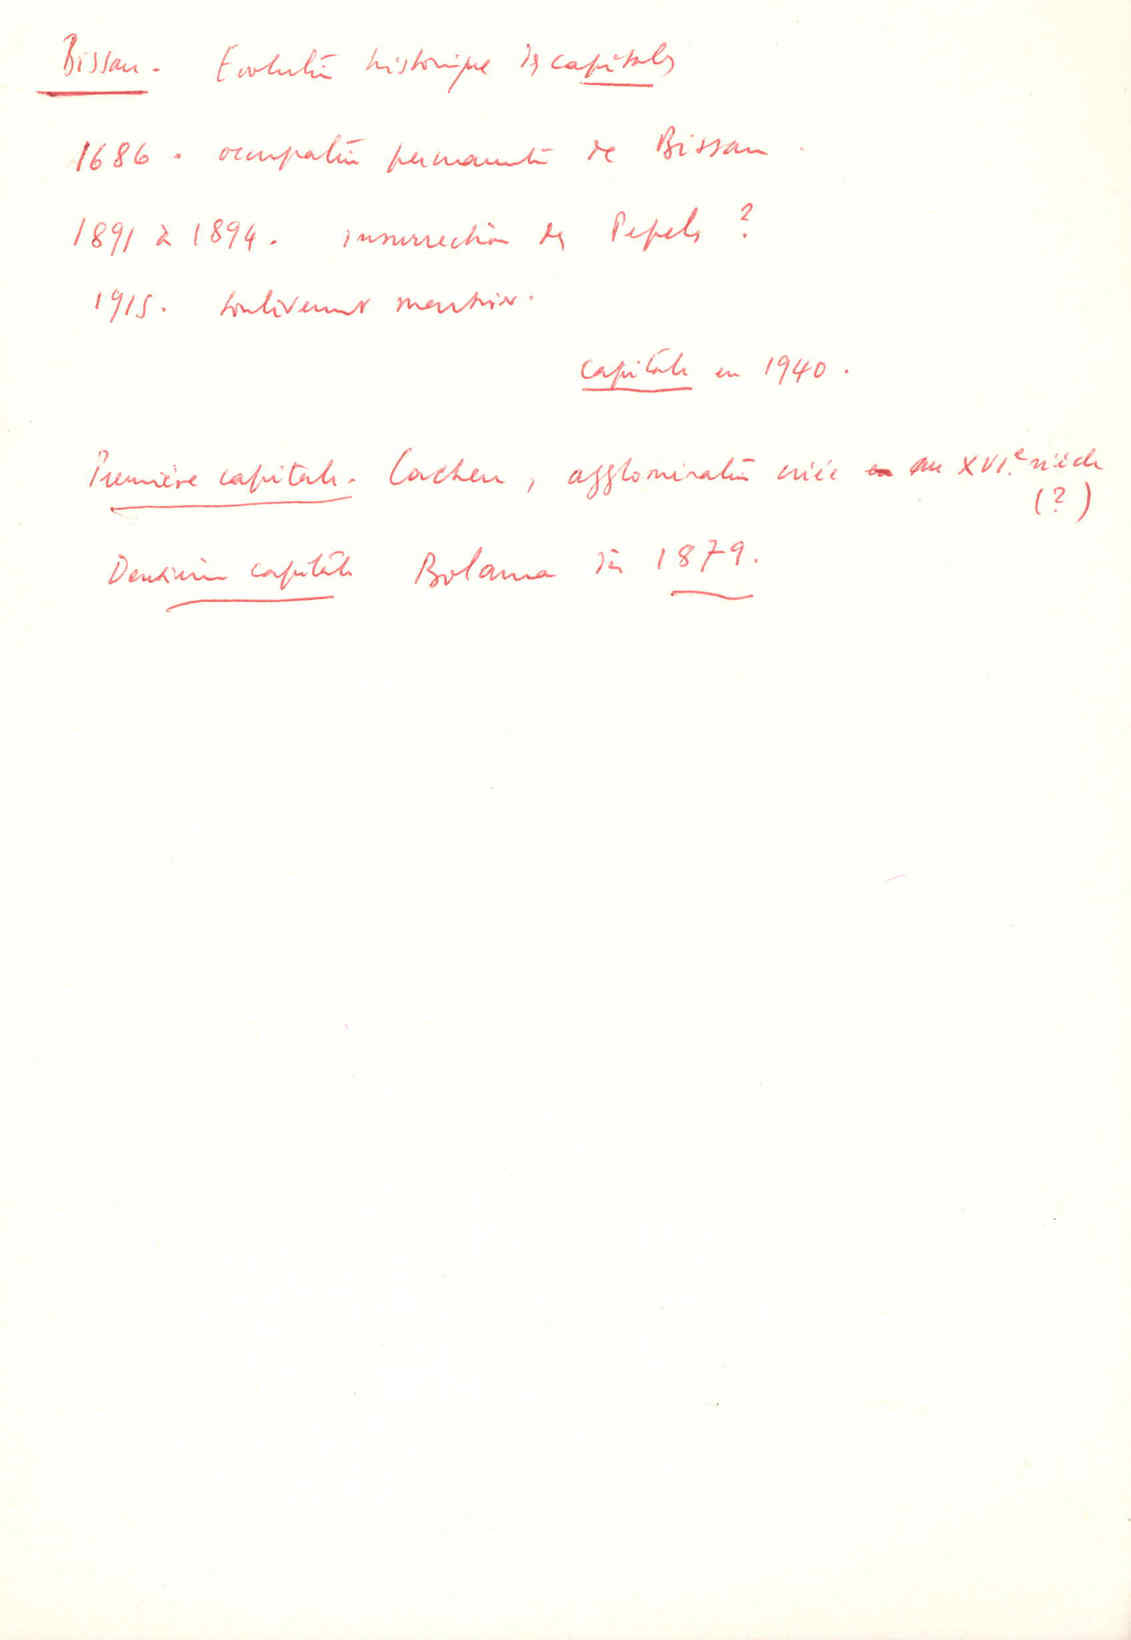 Bissau. Evolution historique des capitales
1686. occupation permanente de Bissau.
1891 à 1894. insurrection des Pepels ?
1915. soulèvement meurtrier.
capitale en 1940.
Première capitale. Cacheu, agglomération créée au XVI.e siècle
(?)
Deuxième capitale Bolama en 1879.